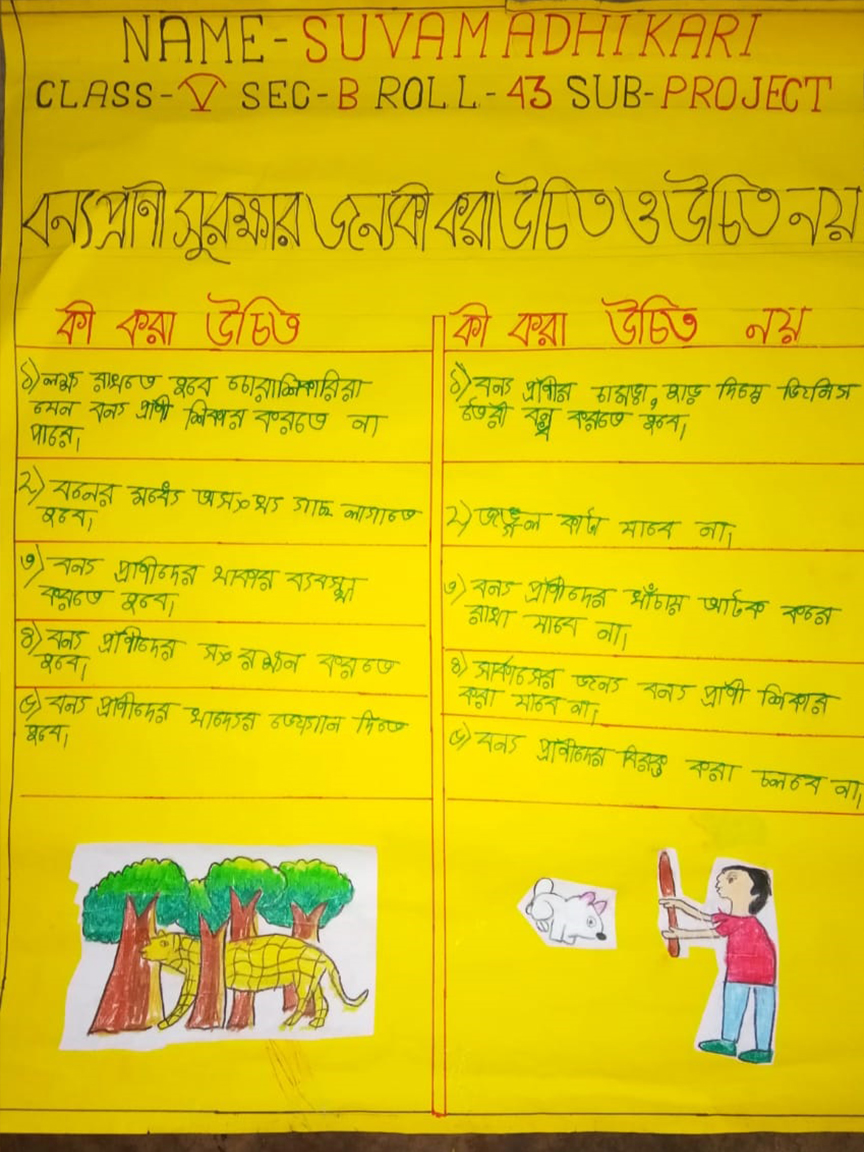 NAME-SUVAM ADHIKARI
CLASS-V SEC-B ROLL-43 SUB-PROJECT
বন্য প্রাণী সুরক্ষার জন্যে কী করা উচিত ও উচিত নয়
কী করা উচিত
১) লক্ষ রাখতে হবে চোরাশিকারিরা
যেন বন্য প্রাণী শিকার করতে না
পারে।
২) বনের মধ্যে অসংখ্য গাছ লাগাতে
হবে।
৩) বন্য প্রাণীদের থাকার ব্যবস্থা
করতে হবে।
৪) বন্য প্রাণীদের সংরক্ষন করতে
হবে।
৫) বন্য প্রাণীদের খাদ্যের যোগান দিতে
হবে।
কী করা উচিত নয়
১) বন্য প্রাণীর চামড়া, হাড় দিয়ে জিনিস
তৈরী বন্ধ করতে হবে।
২) জঙ্গল কাটা যাবে না।
৩) বন্য প্রাণীদের খাঁচায় আটক করে
রাখা যাবে না।
৪) সার্কাসের জন্য বন্য প্রাণী শিকার
করা যাবে না।
৫) বন্য প্রাণীদের বিরক্ত করা চলবে না।